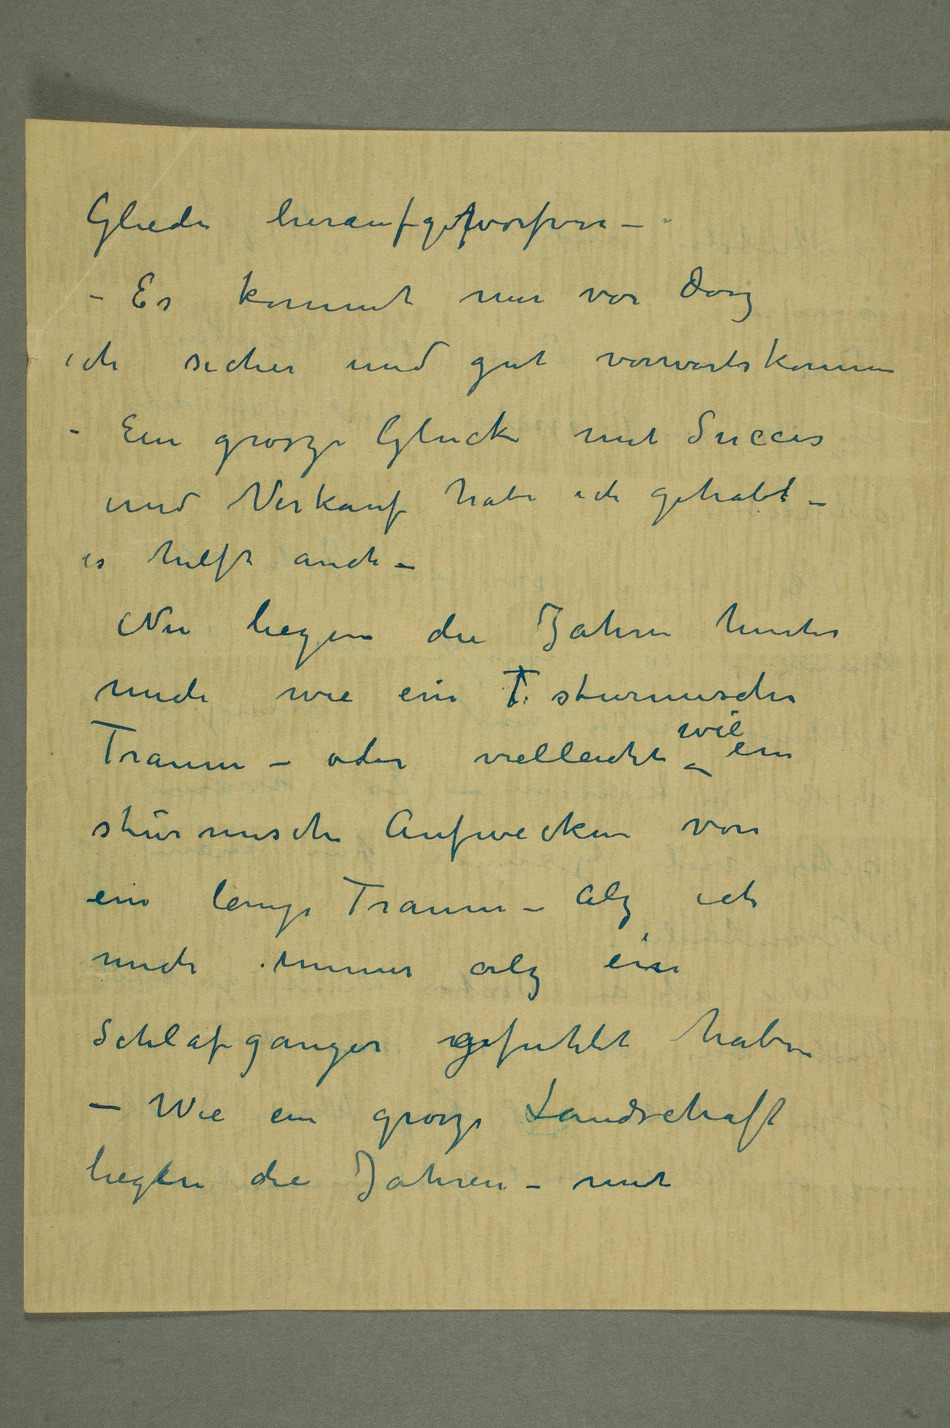 Glieder heraufgeworfen –
– Es kommt mir vor dasz
ich sicher und gut vorwartskomme
– Ein grosze Glück mit Succes
und Verkauf habe ich gehabt –
es hilft auch –
Nu liegen die Jahren hinter
mich wie ein T. sturmischer
Traum – oder vielleicht – wie ein
stürmische Aufwecken von
ein lange Traum – Alz ich
mich immer alz ein
Schlafganger gefuhlt habe
– Wie ein grosze Landschaft
liegen die Jahren – mit